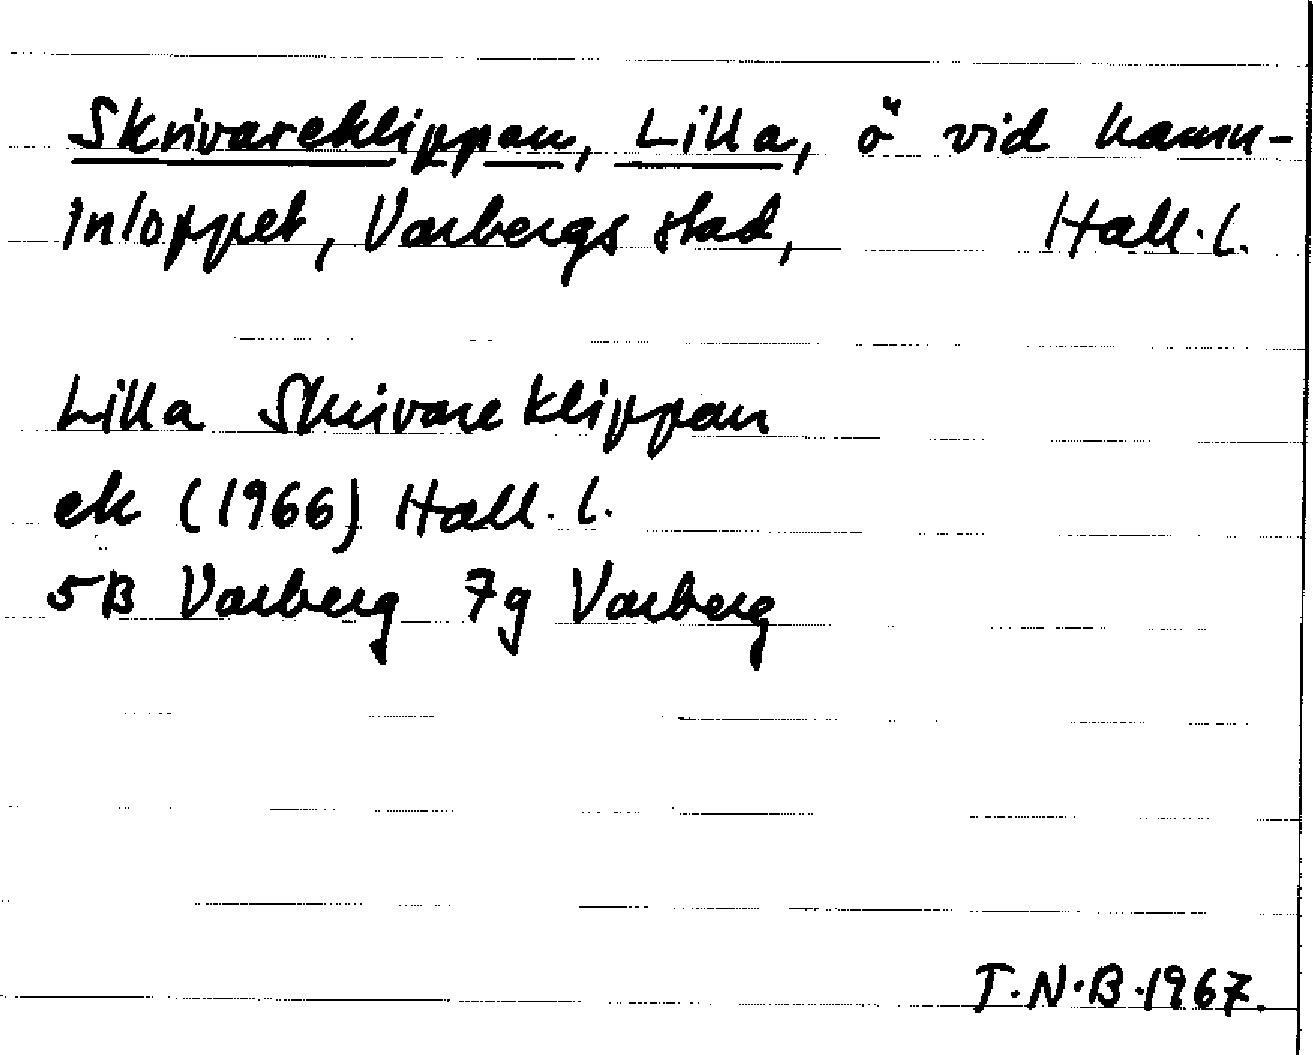 Skrivareklippan, Lilla, ö vid hamn-
inloppet, Varbergs stad, Hall. l.
Lilla Skrivareklippan
ek (1966) Hall. l.
5B Varberg 7g Varberg
T.N.B. 1967.